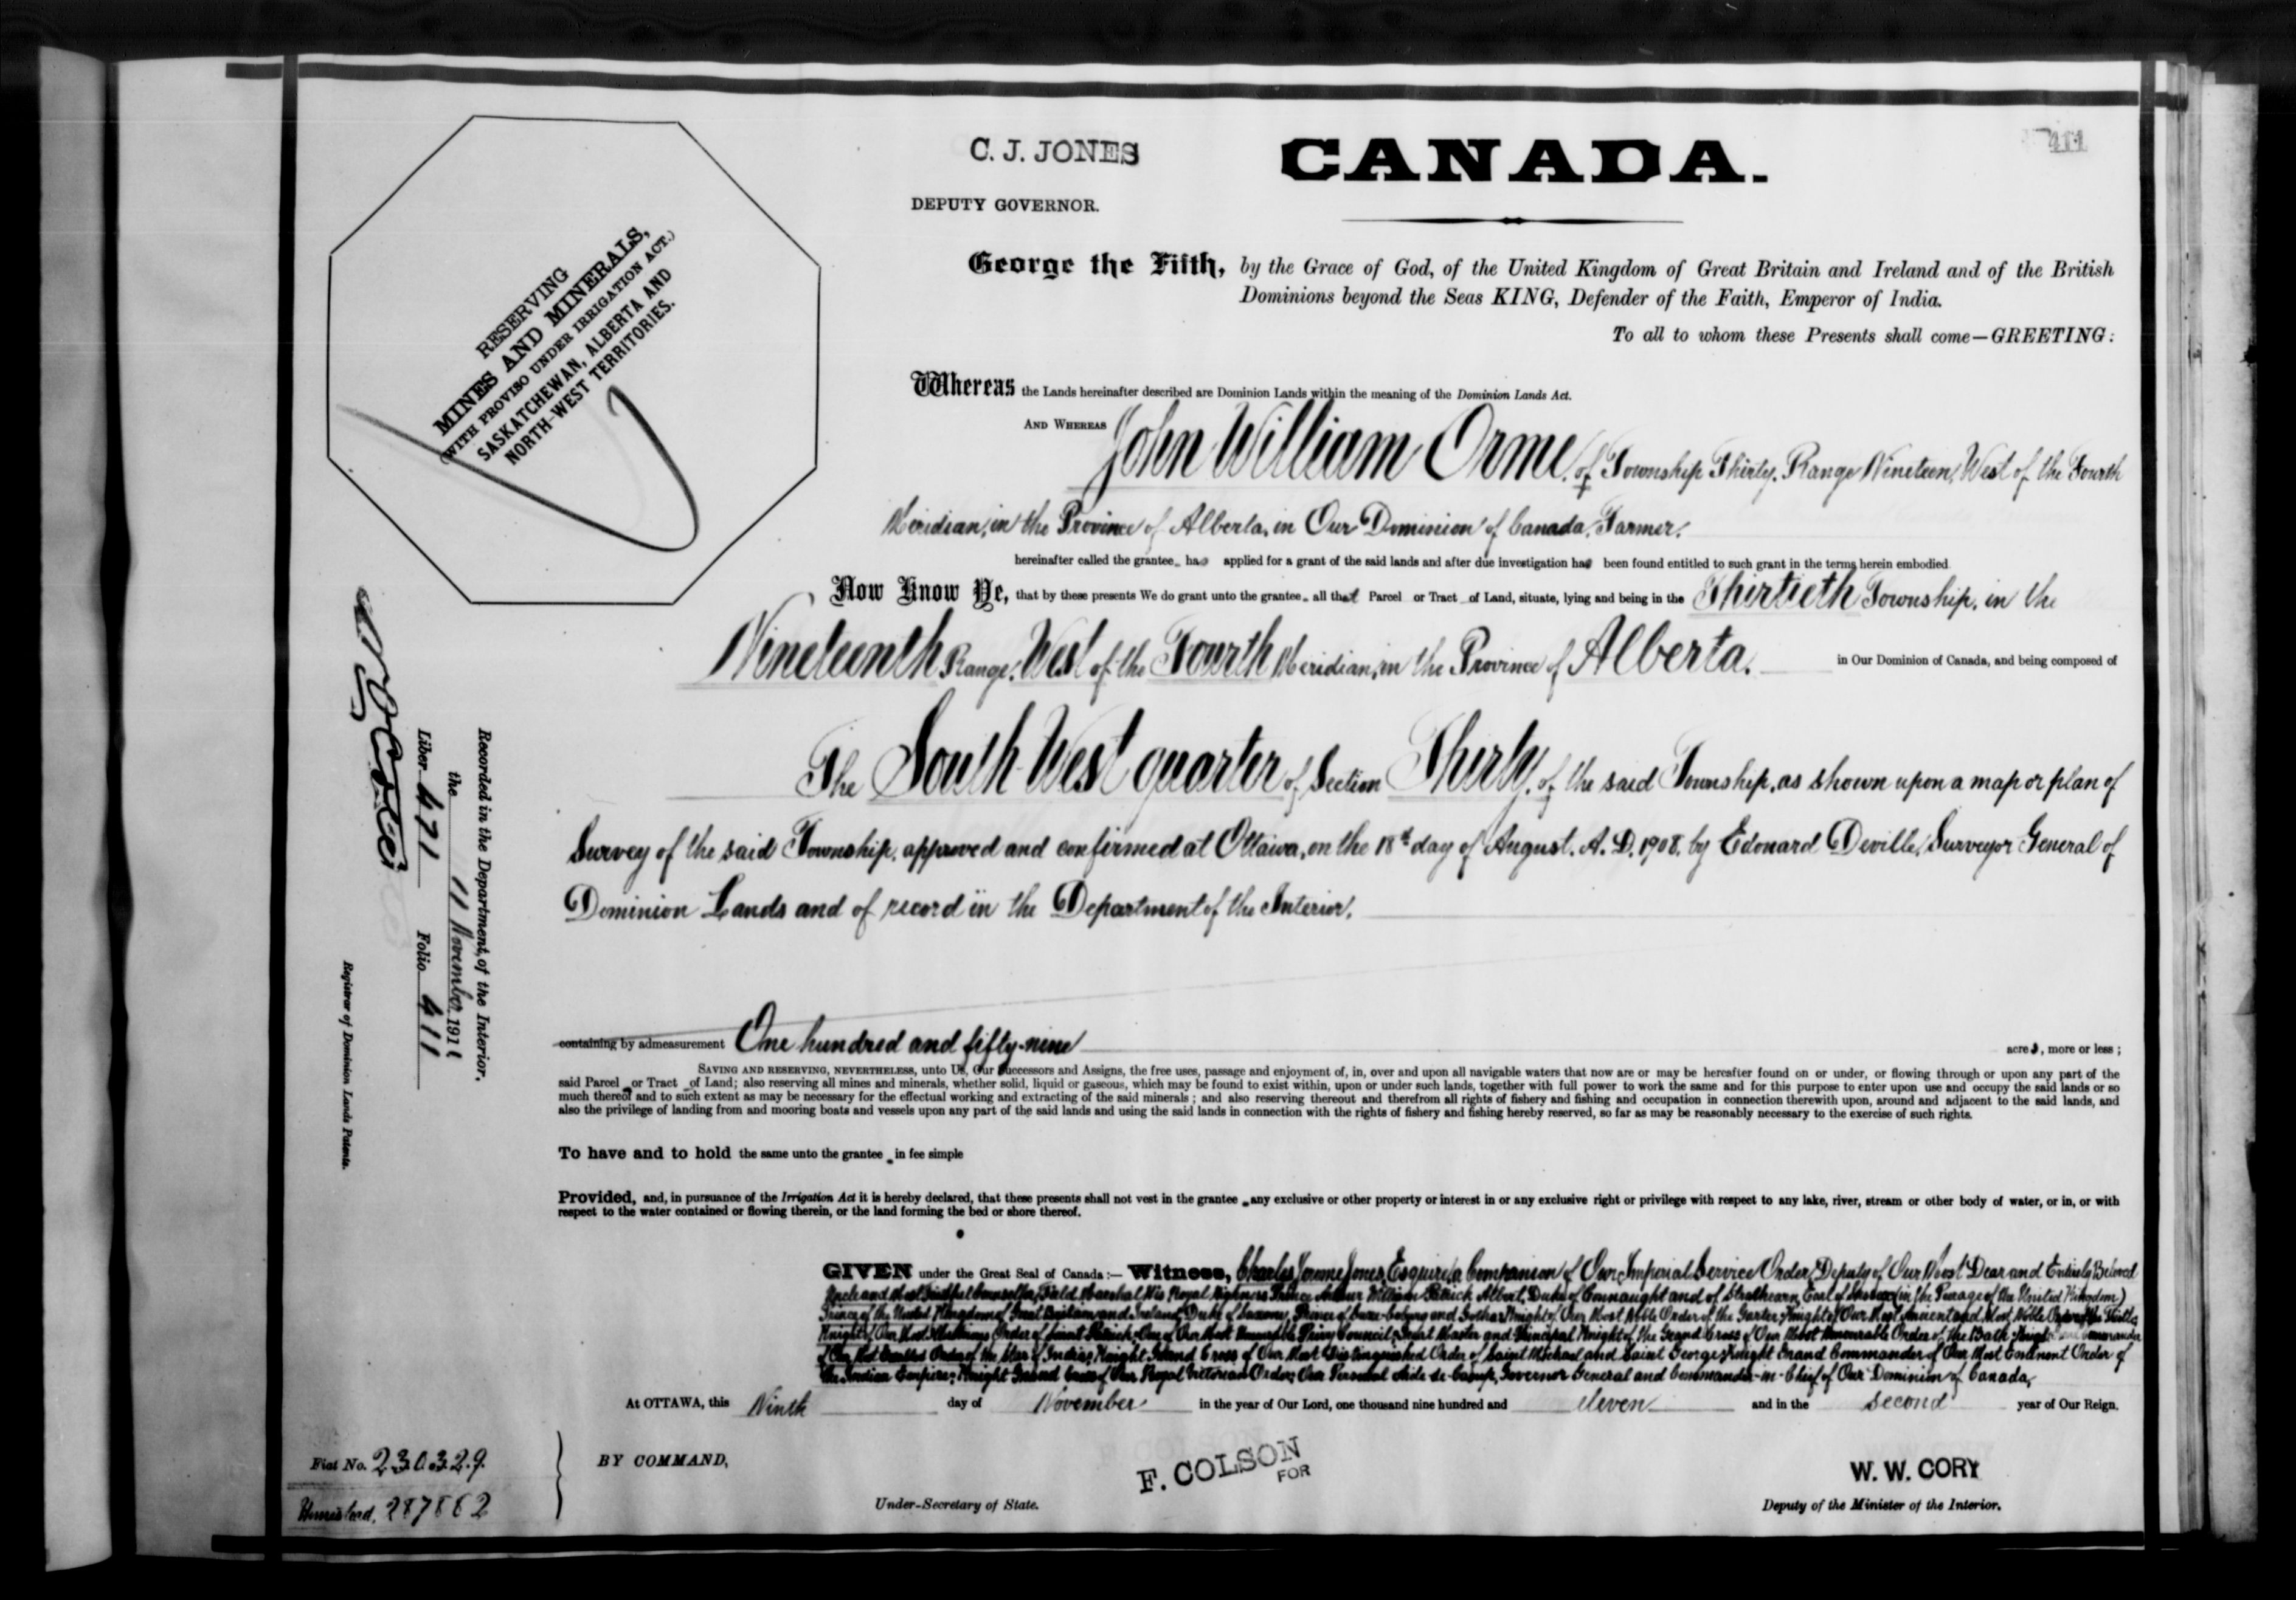 411
C. J. JONES
DEPUTY GOVERNOR.
CANADA.
RESERVING
MINES AND MINERALS,
(WITH PROVISO UNDER IRRIGATION ACT.)
SASKATCHEWAN, ALBERTA AND
NORTH-WEST TERRITORIES.
George the Fifth, by the Grace of God, of the United Kingdom of Great Britain and Ireland and of the British
Dominions beyond the Seas KING, Defender of the Faith, Emperor of India.
To all to whom these Presents shall come—GREETING:
Whereas the Lands hereinafter described are Dominion Lands within the meaning of the Dominion Lands Act.
AND WHEREAS John William Orme, of Township Thirty, Range Nineteen, West of the Fourth
Meridian, in the Province of Alberta, in Our Dominion of Canada, Farmer.
hereinafter called the grantee, has applied for a grant of the said lands and after due investigation has been found entitled to such grant in the terms herein embodied
Now Know Ye, that by these presents We do grant unto the grantee all that Parcel or Tract of Land, situate, lying and being in the Thirtieth Township, in the
Nineteenth Range, West of the Fourth Meridian, in the Province of Alberta. in Our Dominion of Canada, and being composed of
The South West quarter of Section Thirty, of the said Township, as shown upon a map or plan of
Survey of the said Township, approved and confirmed at Ottawa, on the 18th day of August, A. D. 1908, by Edouard Deville, Surveyor General of
Dominion Lands and of record in the Department of the Interior.
Recorded in the Department, of the Interior,
the 11 November 1911
Liber 471 Folio 411
Registrar of Dominion Lands Patents.
containing by admeasurement One hundred and fifty-nine acres, more or less;
SAVING AND RESERVING, NEVERTHELESS, unto Us, Our Successors and Assigns, the free uses, passage and enjoyment of, in, over and upon all navigable waters that now are or may be hereafter found on or under, or flowing through or upon any part of the
said Parcel or Tract of Land; also reserving all mines and minerals, whether solid, liquid or gaseous, which may be found to exist within, upon or under such lands, together with full power to work the same and for this purpose to enter upon use and occupy the said lands or so
much thereof and to such extent as may be necessary for the effectual working and extracting of the said minerals; and also reserving thereout and therefrom all rights of fishery and fishing and occupation in connection therewith upon, around and adjacent to the said lands, and
also the privilege of landing from and mooring boats and vessels upon any part of the said lands and using the said lands in connection with the rights of fishery and fishing hereby reserved, so far as may be reasonably necessary to the exercise of such rights.
To have and to hold the same unto the grantee in fee simple
Provided, and, in pursuance of the Irrigation Act it is hereby declared, that these presents shall not vest in the grantee any exclusive or other property or interest in or any exclusive right or privilege with respect to any lake, river, stream or other body of water, or in, or with
respect to the water contained or flowing therein, or the land forming the bed or shore thereof.
GIVEN under the Great Seal of Canada:— Witness, Charles Jones, Esquire, a Companion of Our Imperial Service Order, Deputy of Our Most Dear and Entirely Beloved
Uncle and Most Faithful Counsellor, Field Marshal His Royal Highness Prince Arthur William Patrick Albert, Duke of Connaught and of Strathearn, Earl of Sussex (in the Peerage of the United Kingdom)
Prince of the United Kingdom of Great Britain and Ireland, Duke of Saxony, Prince of Saxe-Coburg and Gotha; Knight of Our Most Noble Order of the Garter; Knight of Our Most Ancient and Most Noble Order of the Thistle;
Knight of Our Most Illustrious Order of Saint Patrick; One of Our Most Honourable Privy Council; Great Master and Principal Knight of the Grand Cross of Our Most Honourable Order of the Bath; Knight Commander
of Our Most Exalted Order of the Star of India; Knight Grand Cross of Our Most Distinguished Order of Saint Michael and Saint George; Knight Grand Commander of Our Most Eminent Order of
the Indian Empire; Knight Grand Cross of Our Royal Victorian Order; Our Personal Aide-de-Camp, Governor General and Commander-in-Chief of Our Dominion of Canada,
At OTTAWA, this Ninth day of November in the year of Our Lord, one thousand nine hundred and eleven and in the second year of Our Reign.
Fiat No. 230329.
Homestead, 287882
BY COMMAND,
F. COLSON
FOR
Under-Secretary of State.
W. W. CORY
Deputy of the Minister of the Interior.